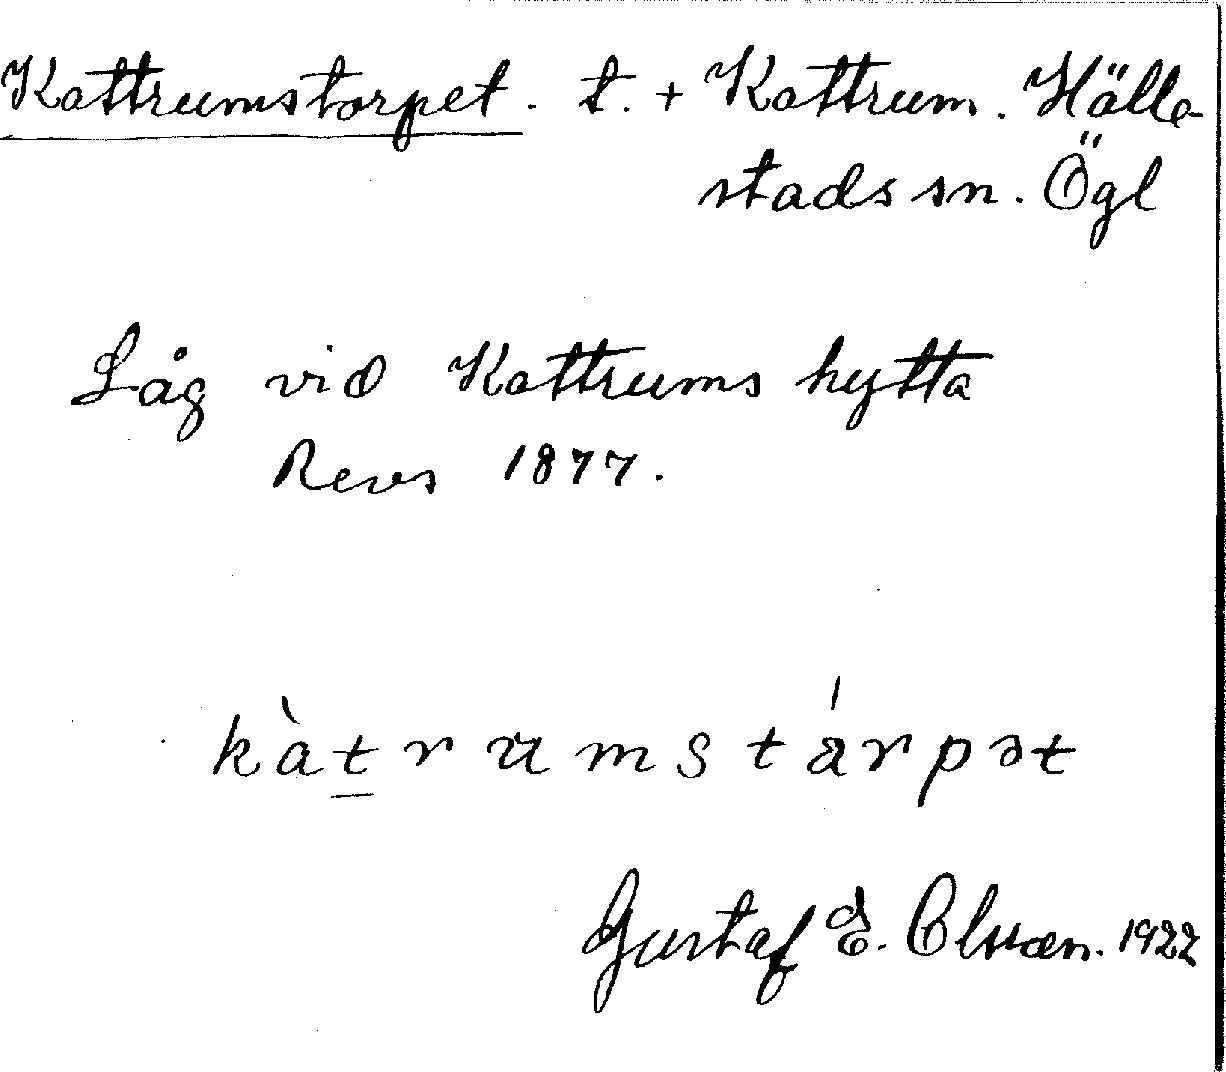 Kattrumstorpet. t. + Kattrum. Hälle-
stads sn. Ögl
Låg vid Kattrums hytta
Revs 1877.
kàt̲rumstárpət
Gustaf E. Olsson. 1922